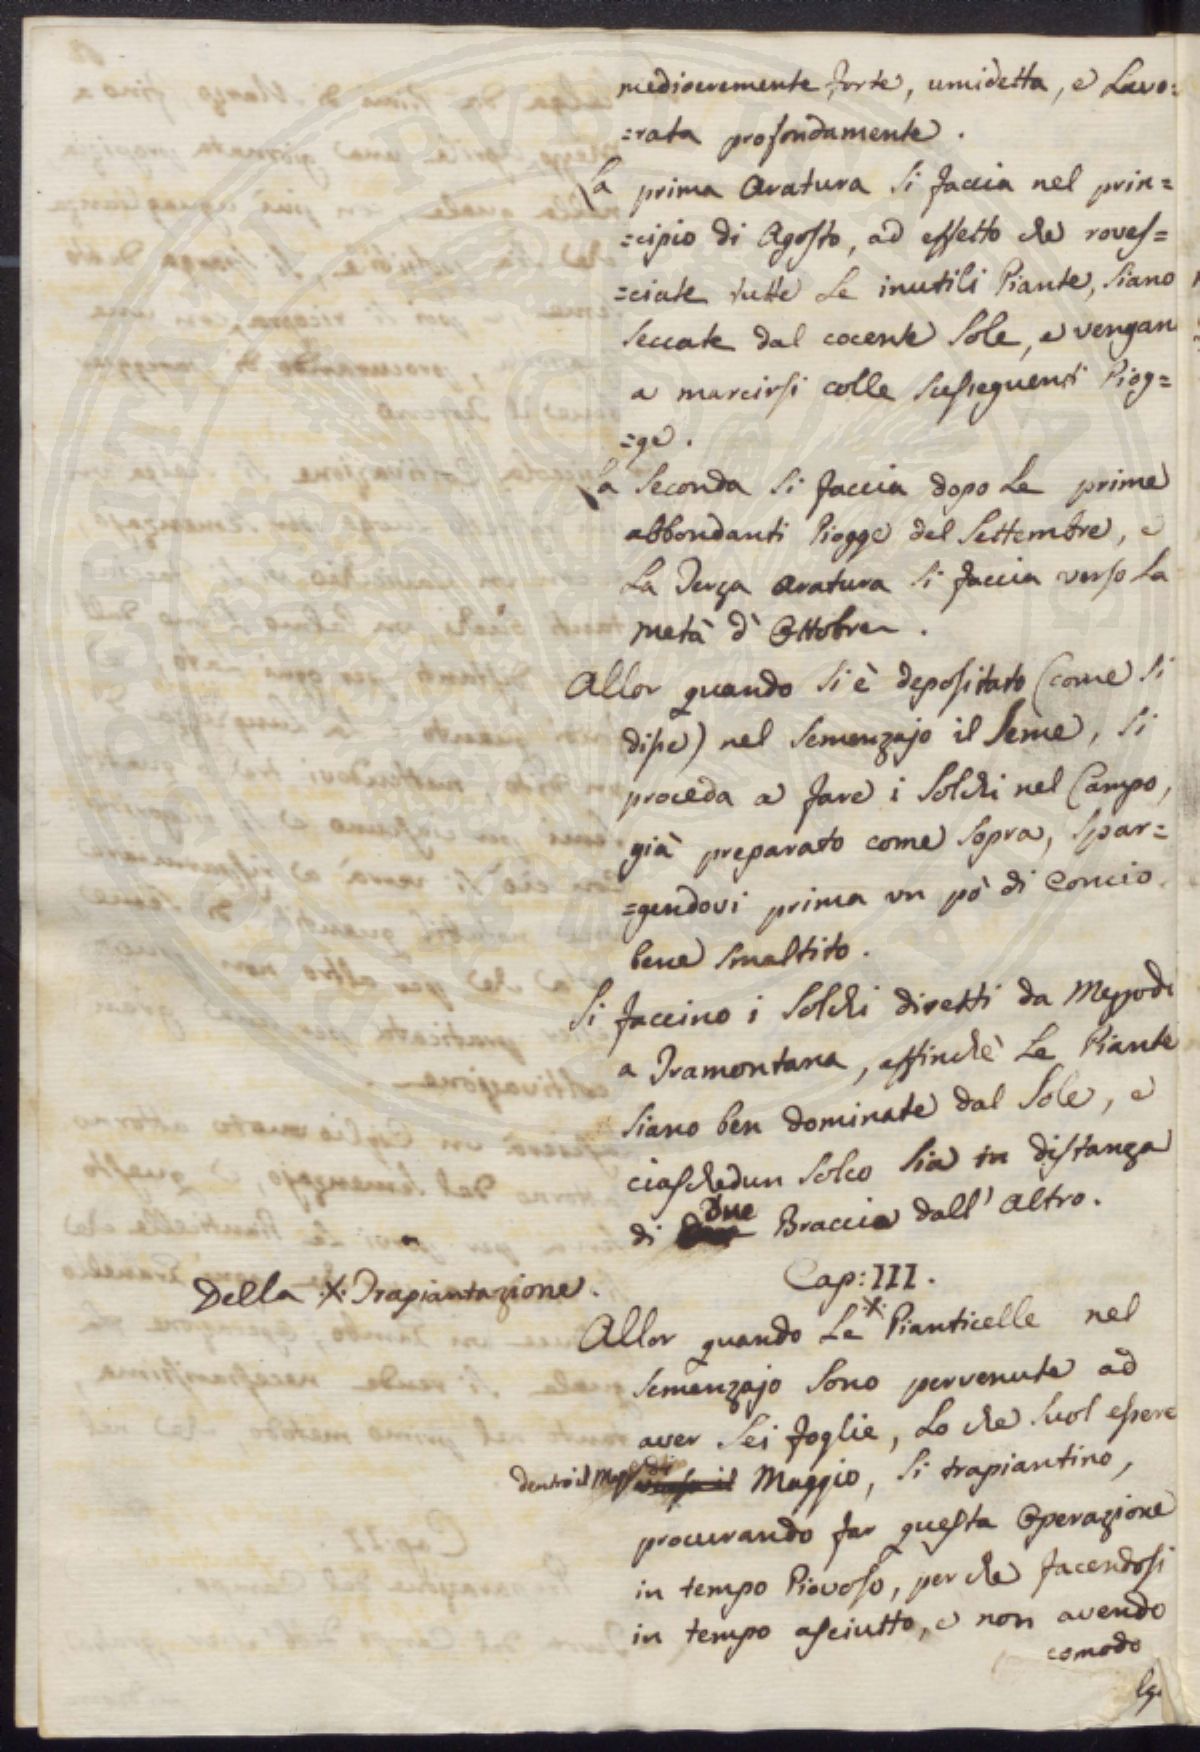 mediocremente forte, umidetta, e Lavo=
=rata profondamente.
La prima Aratura si faccia nel prin=
=cipio di Agosto, ad effetto che roves=
=ciate tutte Le inutili Piante, siano
seccate dal cocente Sole, e vengan
a marcirsi colle susseguenti Piog=
=ge.
La Seconda si faccia dopo Le prime
abbondanti Piogge del Settembre, e
La Terza Aratura si faccia verso La
metà d'Ottobre.
Allor quando si è depositato (come si
disse) nel Semenzajo il Seme, si
proceda a fare i Solchi nel Campo,
già preparato come sopra, spar=
=gendovi prima un pò di Concio
bene smaltito.
Si faccino i Solchi diretti da Mezzodì
a Tramontana, affinchè Le Piante
siano ben dominate dal Sole, e
ciaschedun Solco sia in distanza
di Due Braccia dall'altro.
Cap: III.
Della .X. Trapiantazione.
Allor quando Le .X. Pianticelle nel
Semenzajo sono pervenute ad
aver sei foglie, Lo che suol essere
dentro il Mese di verso il Maggio, si trapiantino,
procurando far questa Operazione
in tempo Piovoso, per che facendosi
in tempo asciutto, e non avendo
comodo